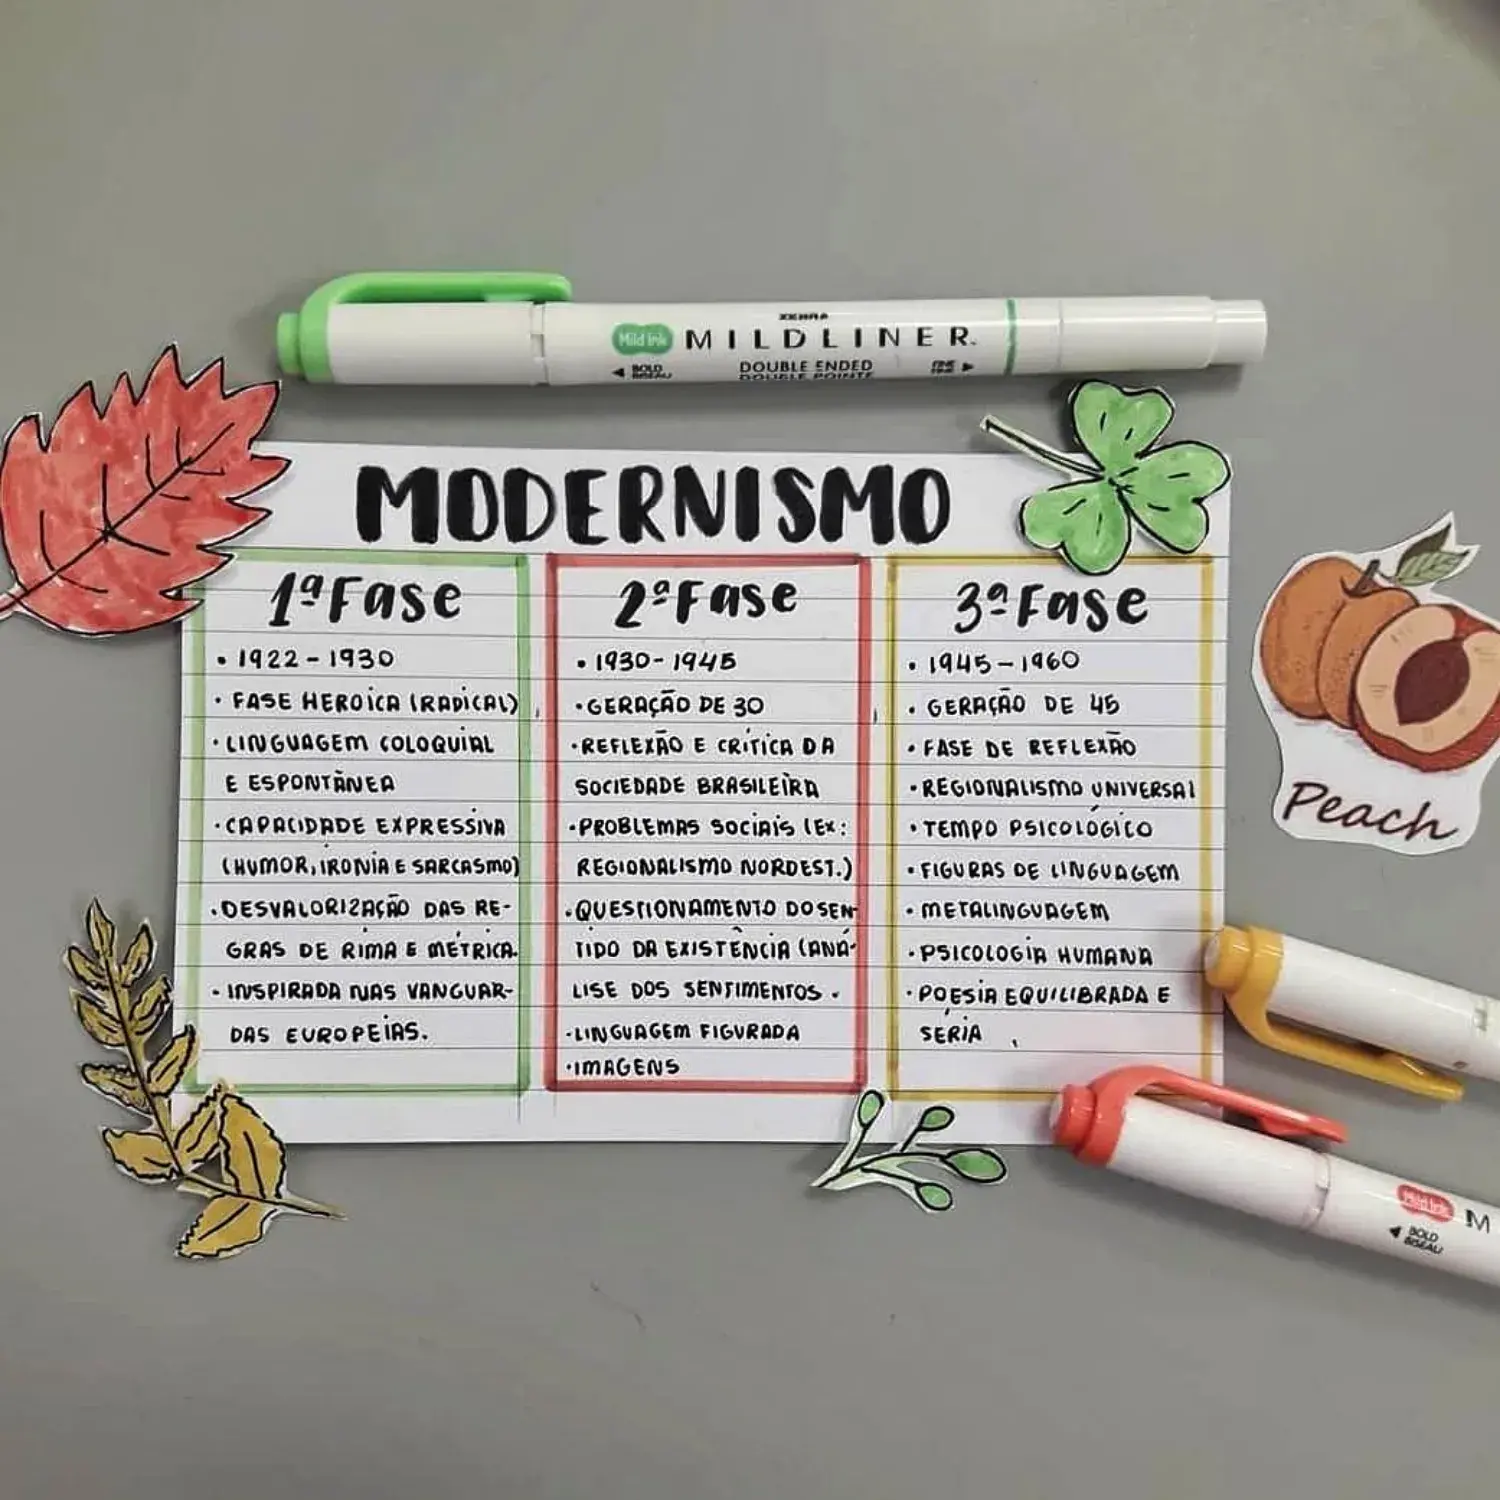 ZEBRA
Mild Ink MILDLINER
BOLD DOUBLE ENDED FINE
BISEAU DOUBLE POINTE
MODERNISMO
1ª Fase
• 1922 - 1930
• FASE HEROICA (RADICAL)
• LINGUAGEM COLOQUIAL
E ESPONTÂNEA
• CAPACIDADE EXPRESSIVA
(HUMOR, IRONIA E SARCASMO)
• DESVALORIZAÇÃO DAS RE-
GRAS DE RIMA E MÉTRICA.
• INSPIRADA NAS VANGUAR-
DAS EUROPEIAS.
2ª Fase
• 1930 - 1945
• GERAÇÃO DE 30
• REFLEXÃO E CRÍTICA DA
SOCIEDADE BRASILEIRA
• PROBLEMAS SOCIAIS (EX:
REGIONALISMO NORDEST.)
• QUESTIONAMENTO DO SEN-
TIDO DA EXISTÊNCIA (ANÁ-
LISE DOS SENTIMENTOS.
• LINGUAGEM FIGURADA
• IMAGENS
3ª Fase
• 1945 - 1960
• GERAÇÃO DE 45
• FASE DE REFLEXÃO
• REGIONALISMO UNIVERSAL
• TEMPO PSICOLÓGICO
• FIGURAS DE LINGUAGEM
• METALINGUAGEM
• PSICOLOGIA HUMANA
• POESIA EQUILIBRADA E
SÉRIA
Peach
Mild Ink M
BOLD
BISEAU